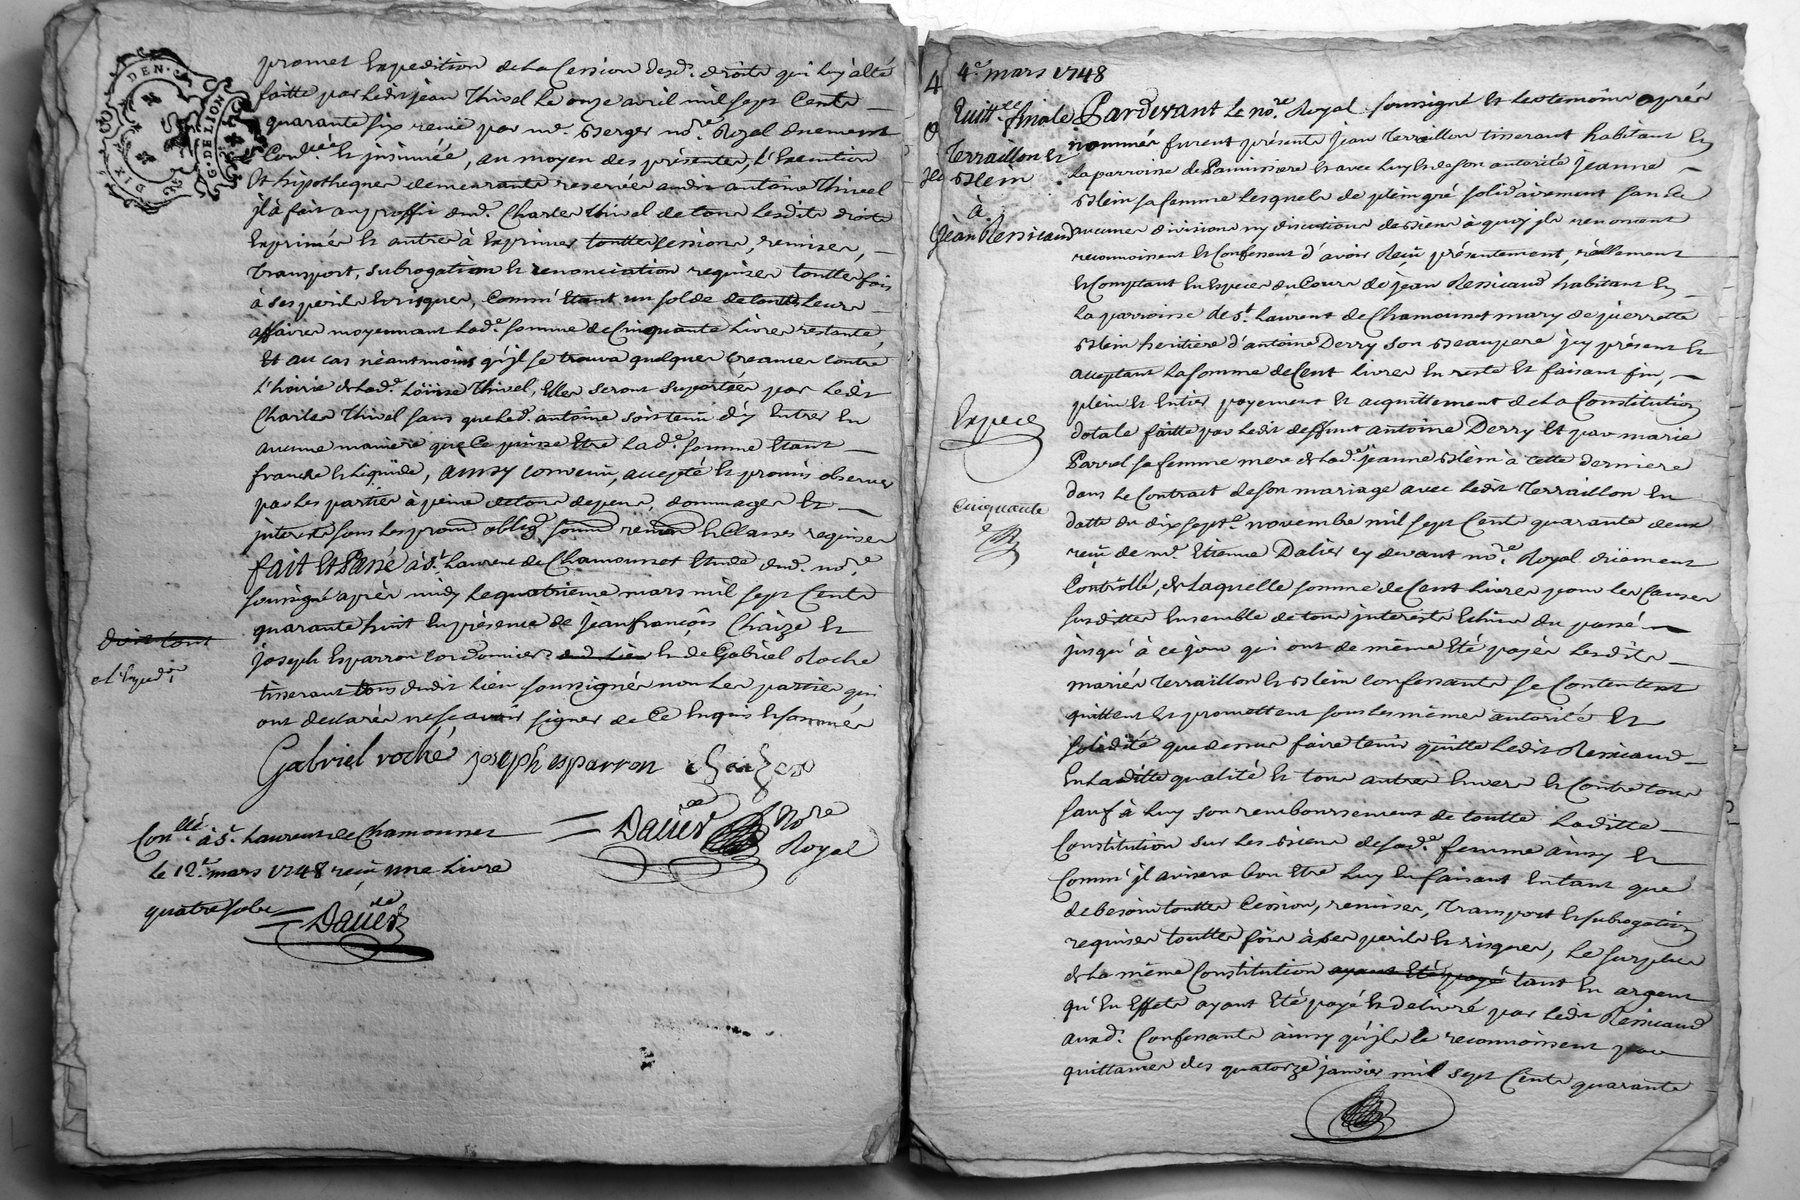 DIX DEN. G. DE LION
promet Expedition de la Cession desd. droits qui luy a été
faitte par ledit jean Thivel le onze avril mil sept Cents
quarante six reçue par me. Berger nore. Royal düement
Conllée et insinuée, au moyen des présentes, l'Execution
et hipotheques demeurants reservée audit antoine Thivel
jl à fait au proffit dud. Charles thivel de tous lesdits droits
Exprimés et autres à Exprimer toutte cessions, remises,
transport, subrogation et renonciation requises touttes fois
à ses perils et risques, comm' Etant un solde de toutes leurs
affaires moyennant lade. somme de Cinquante livres restante,
Et au cas néantmoins qu'jl se trouva quelques creances contre
l'hoirie de lade. Loüise Thivel, Elles seront suportées par ledit
Charles Thivel sans que led. antoine soit tenü d'y Entrer en
aucune maniere que Ce puisse Etre lade. somme Etant
franche et liquide, ainsy convenu, accepté et promis observer
par les parties à peine de tous depens, dommages et
interets sous les prom oblig soum renon et Clauses requises
fait et Passé à St. Laurent de Chamousset Etude dud. nore.
soussigné après midy le quatrieme mars mil sept Cents
quarante huit En présence de Jean françois Chaize et
joseph Esparron cordonniers aud. lieu et de Gabriel Roche
tisserant tous dudit lieu soussignés non les parties qui
ont declarés ne scavoir signer de Ce Enquis et sommés
doit tout
et l'Expedi.
Gabriel roche joseph esparron Chaize
Dalier Nore Royal
Conllé à St. Laurent de Chamousset
le 12e. mars 1748 reçu une livre
quatre sols
Dalier
4e. mars 1748
Quittce. finale
Terraillon et
Blein
à
Jean Ressicaud
Pardevant le nore. Royal soussigné et les temoins après
nommés furent présents Jean Terraillon tisserant habitant En
la parroisse de Panissiere et avec luy et de son autorité Jeanne
Blein sa femme lesquels de plein gré solidairement sans
aucunes division ny discution de Biens à quoy jls renoncent
reconnoissent et Confessent d'avoir Reçu présentement, réellement
et Comptant En Especes du Cours de jean Ressicaud habitant En
la parroisse de St. Laurent de Chamousset mary de pierrette
Blein heritiere d'antoine Derry son Beaupere jcy présent et
acceptant la somme de Cent livres En reste et faisant fin,
plein et Entier payement et acquittement de la Constitution
dotale faitte par ledit deffunt antoine Derry et par marie
Parrel sa femme mere de lade. jeanne Blein à cette derniere
dans le Contract de son mariage avec ledit Terraillon En
datte du dix septe. novembre mil sept Cent quarante deux
reçu de me. Etienne Dalier cy devant nore. Royal düement
Controllé, de laquelle somme de Cent livres pour les Causes
susdittes Ensemble de tous interests Echus du passé
jusqu'à ce jour qui ont de même Eté payés lesdits
mariés Terraillon et Blein confessants se Contentent
quittent et promettent sous les même autorité et
solidité que dessus faire tenir quitte ledit Ressicaud
En laditte qualité et tous autres Envers et Contre tous
sauf à luy son remboursement de toutte laditte
Constitution sur les Biens de sade. femme ainsy et
Comm' jl avisera bon Etre luy En faisant En tant que
de besoin touttes Cession, remises, Transport et subrogation
requises touttes fois à ses perils et risques, le surplus
de la même Constitution ayant Eté payé tant En argent
qu'En Effets ayant Eté payé et delivré par ledit Ressicaud
auxd. Confessants ainsy qu'jls le reconnoissent par
quittances des quatorze janvier mil sept Cents quarante
Expece
Cinquante